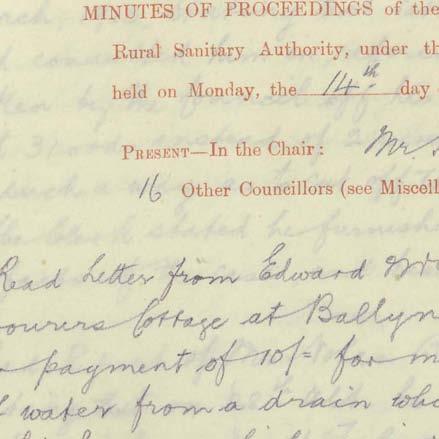 MINUTES OF PROCEEDINGS of the
Rural Sanitary Authority, under th
held on Monday, the 14th day
PRESENT—In the Chair: Mr.
16 Other Councillors (see Miscell
Read Letter from Edward
ourers Cottage at Ballyn
payment of 10/= for m
water from a drain